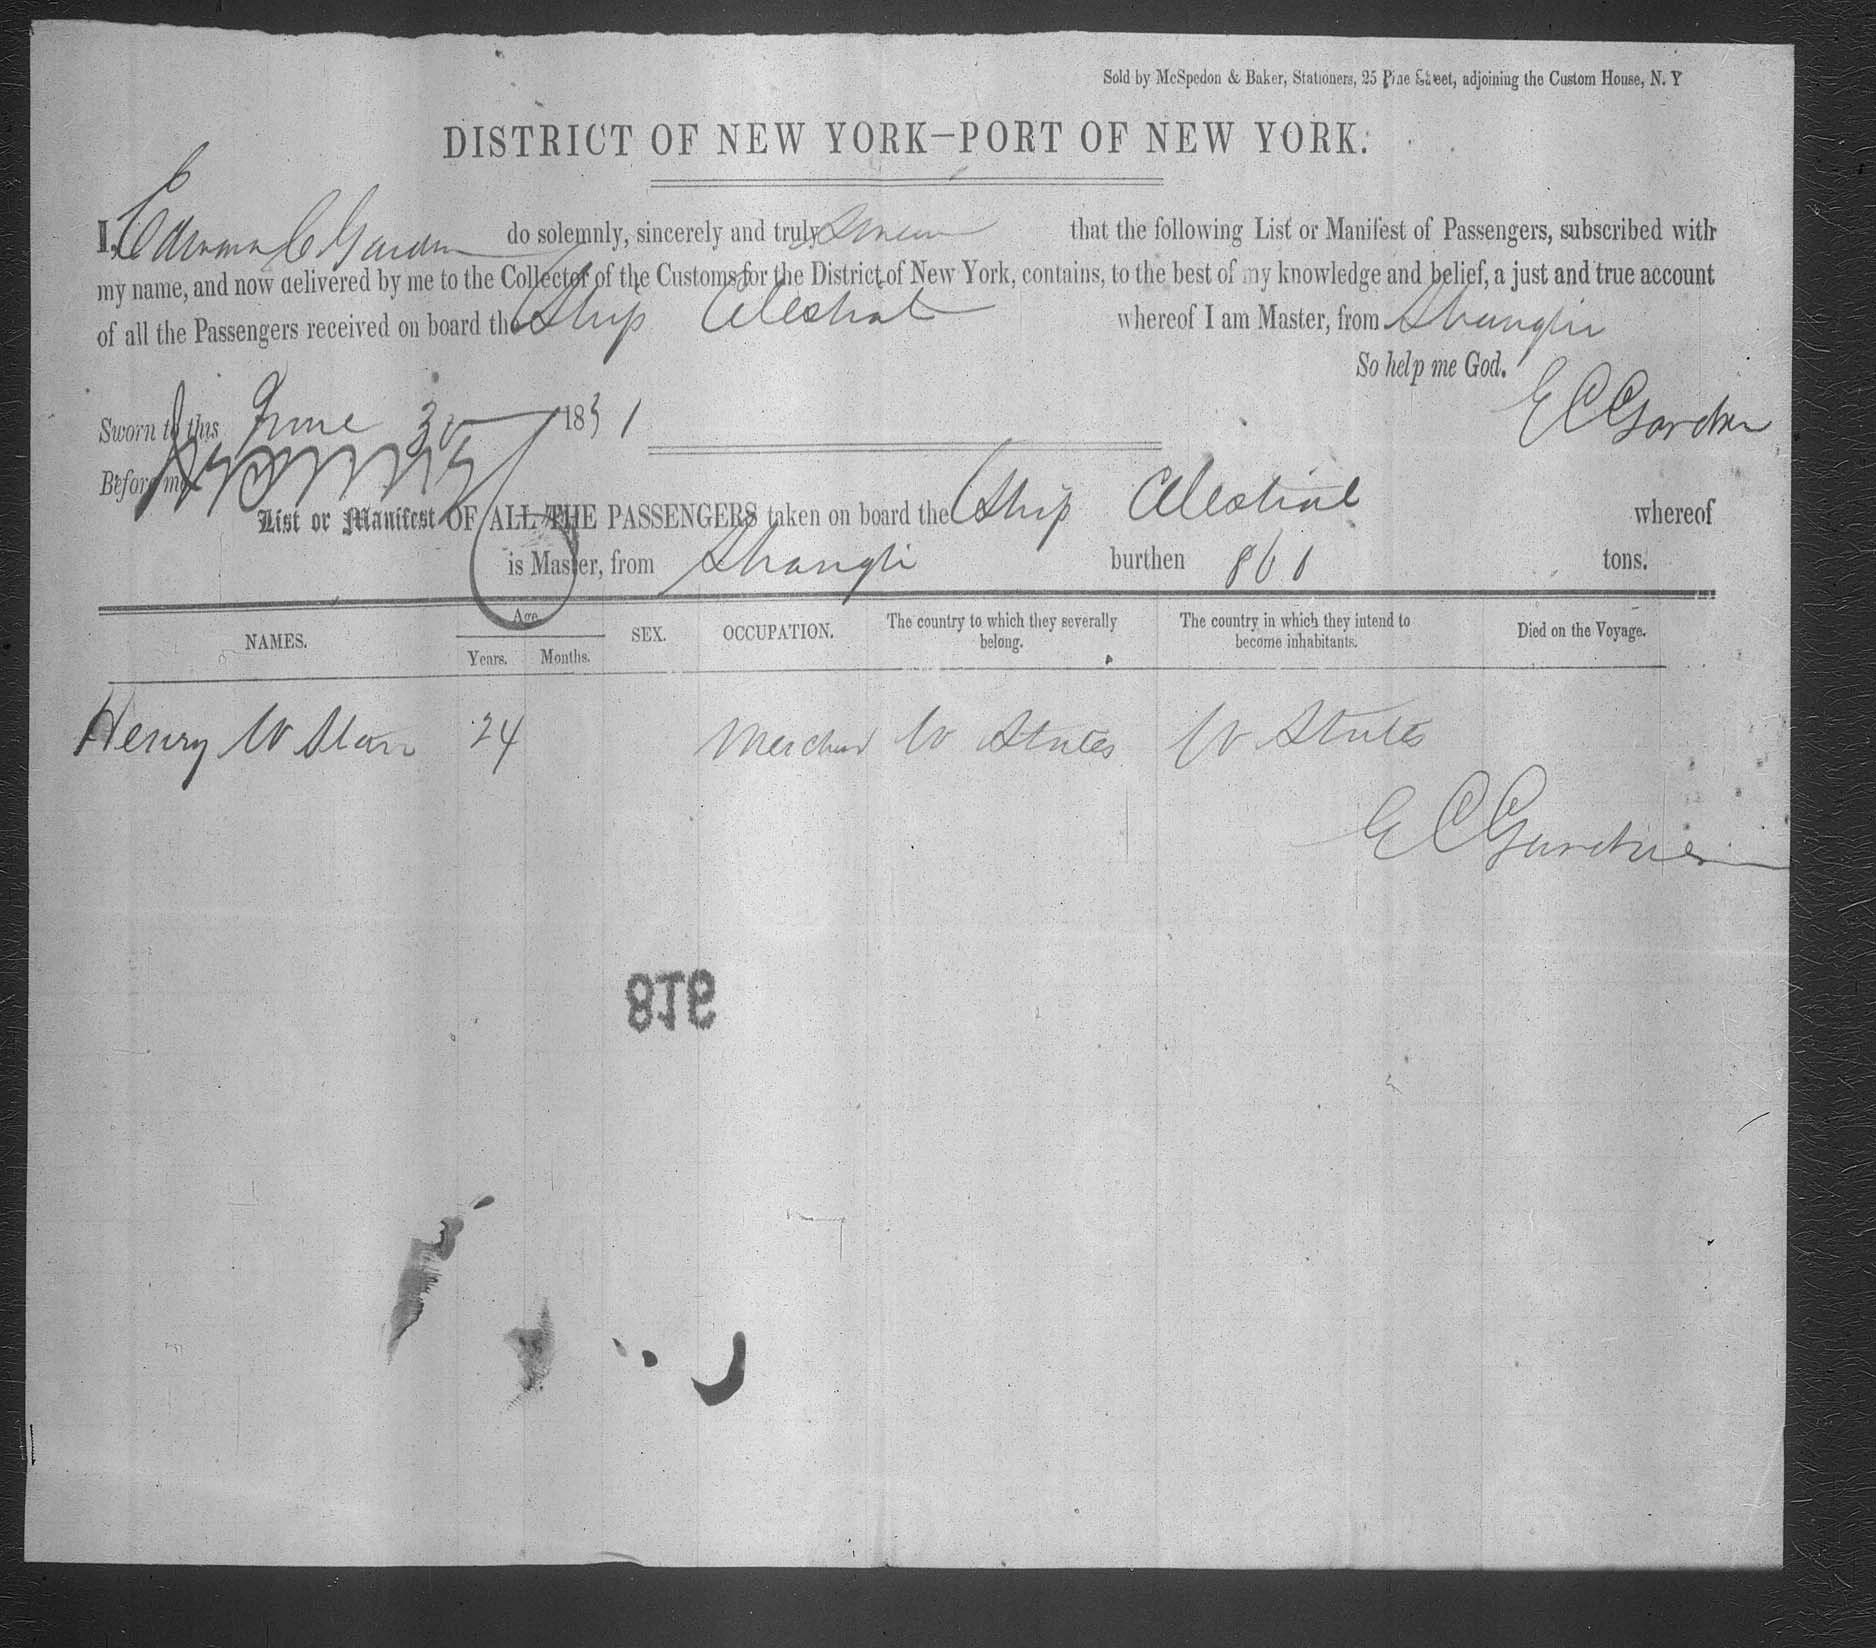 Sold by McSpedon & Baker, Stationers, 25 Pine Street, adjoining the Custom House, N. Y
DISTRICT OF NEW YORK—PORT OF NEW YORK.
I, C Gardner do solemnly, sincerely and truly Swear that the following List or Manifest of Passengers, subscribed with
my name, and now delivered by me to the Collector of the Customs for the District of New York, contains, to the best of my knowledge and belief, a just and true account
of all the Passengers received on board the Ship Celestial whereof I am Master, from Shanghi
So help me God.
Sworn to this June 30 1851
E C Gardner
Before me
List or Manifest OF ALL THE PASSENGERS taken on board the Ship Celestial whereof
is Master, from Shanghi burthen 861 tons.
NAMES. Age Years. Months. SEX. OCCUPATION. The country to which they severally belong. The country in which they intend to become inhabitants. Died on the Voyage.
Henry W 24 Merchant U States U States
E C Gardner
816